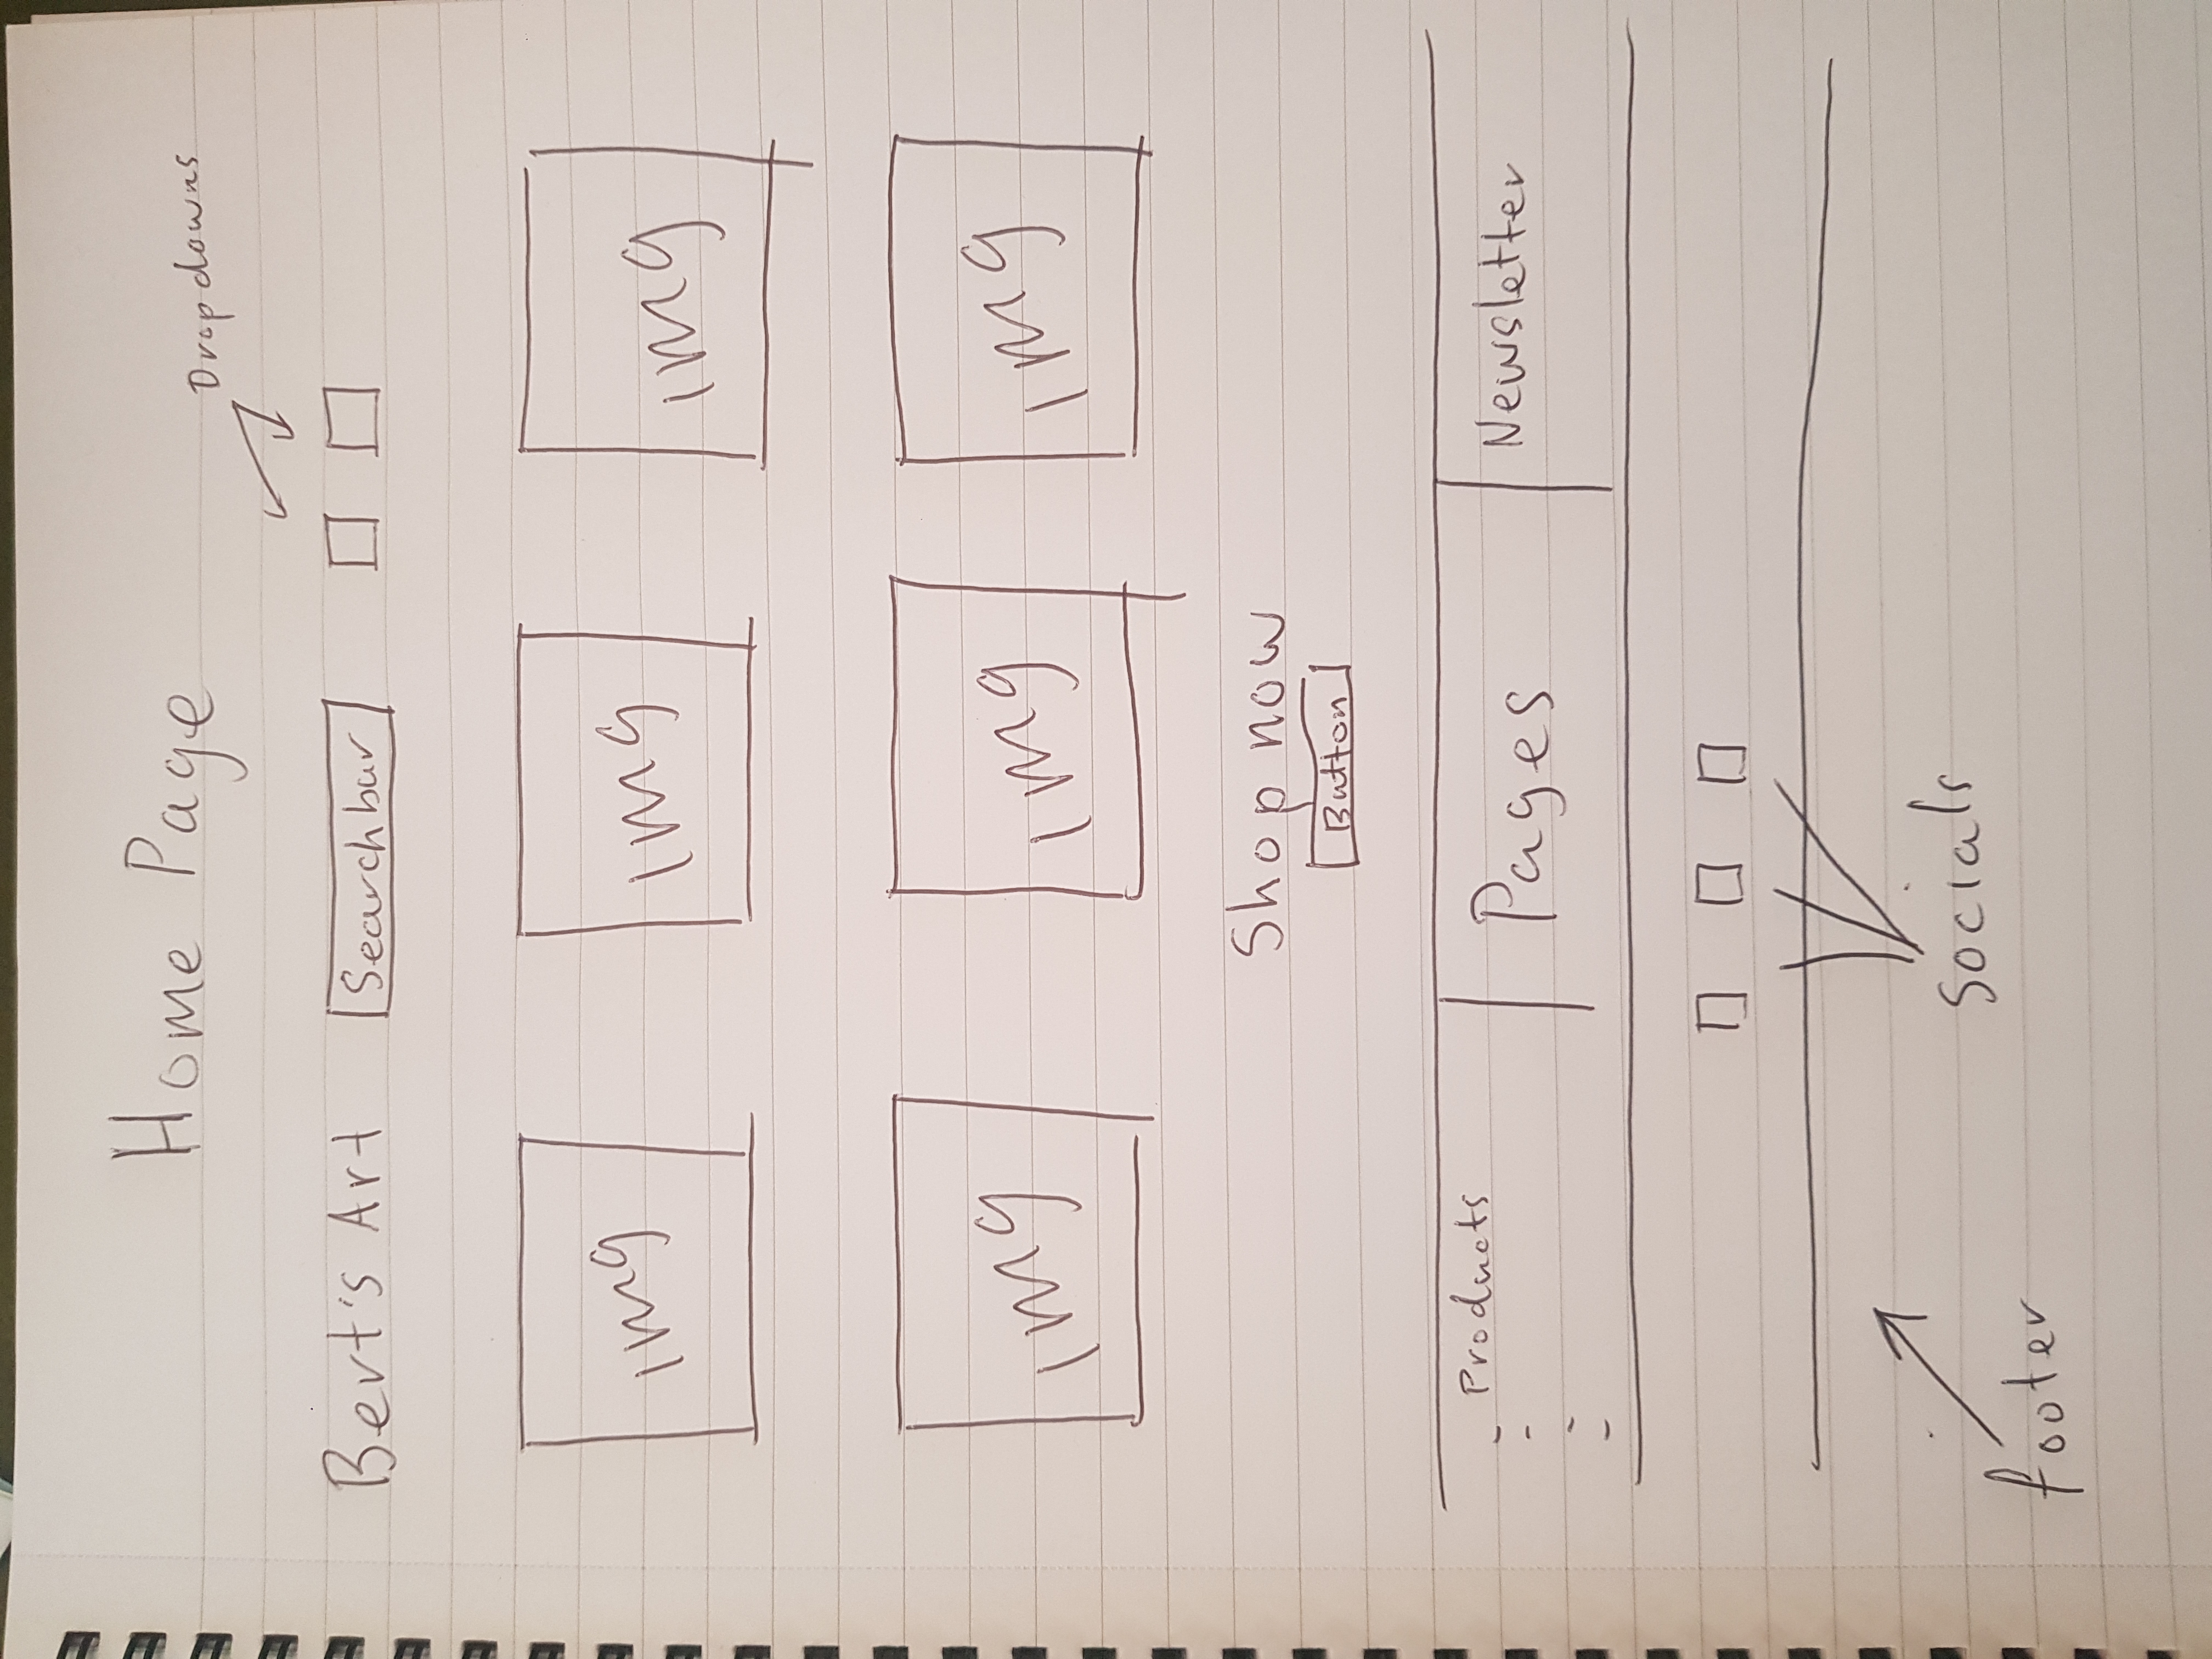 Home Page
Dropdowns
Bert's Art
Searchbar
img
img
img
img
img
img
Shop now
Button
Products
Pages
Newsletter
Socials
footer